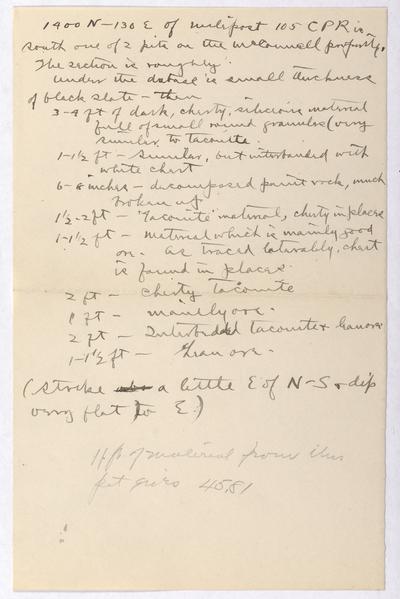 1400 N-130 E of milepost 105 CPR is
south one of 2 pits on the McConnell property.
The section is roughly:
under the diabase is small thickness
of black slate - then
3-4 ft of dark, cherty, silicious material
full of small round granules (very
similar to taconite.
1-1½ ft - similar, but interbanded with
white chert
6-8 inches - decomposed paint rock, much
broken up
1½-2 ft - "Taconite" material, cherty in places
1-1½ ft - material which is mainly good
ore. As traced laterally, chert
is found in places.
2 ft - cherty taconite
1 ft - mainly ore.
2 ft - Interbedded taconite & lean ore
1-1½ ft - Lean ore.
(strike a little E of N-S & dip
very flat to E.)
of material from this
pit gives 45.81